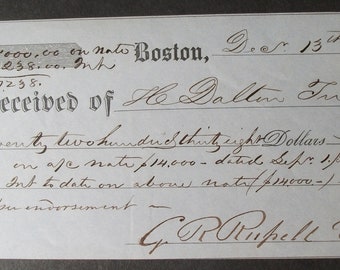 000.00 on note
238.00 Int
7238.
Boston, Dec. 13th
eceived of H Dalton Tr
enty two hundred thirty eight Dollars
on a/c note $14,000 - dated Sept. 1/
Int to date on above note ($14,000-)
endorsement -
G R Russell